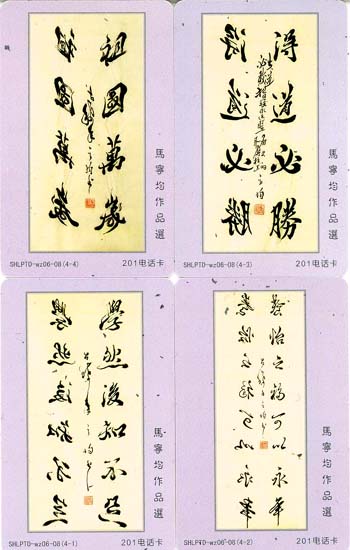 祖國萬歲
祖國萬歲
馬寧均作品選
SHLPTD-wz06-08(4-4)
201电话卡
得道必勝
得道必勝
馬寧均作品選
SHLPTD-wz06-08(4-3)
201电话卡
學然後知不足
學然後知不足
馬寧均作品選
SHLPTD-wz06-08(4-1)
201电话卡
養怡之福可以永年
養怡之福可以永年
馬寧均作品選
SHLPTD-wz06-08(4-2)
201电话卡